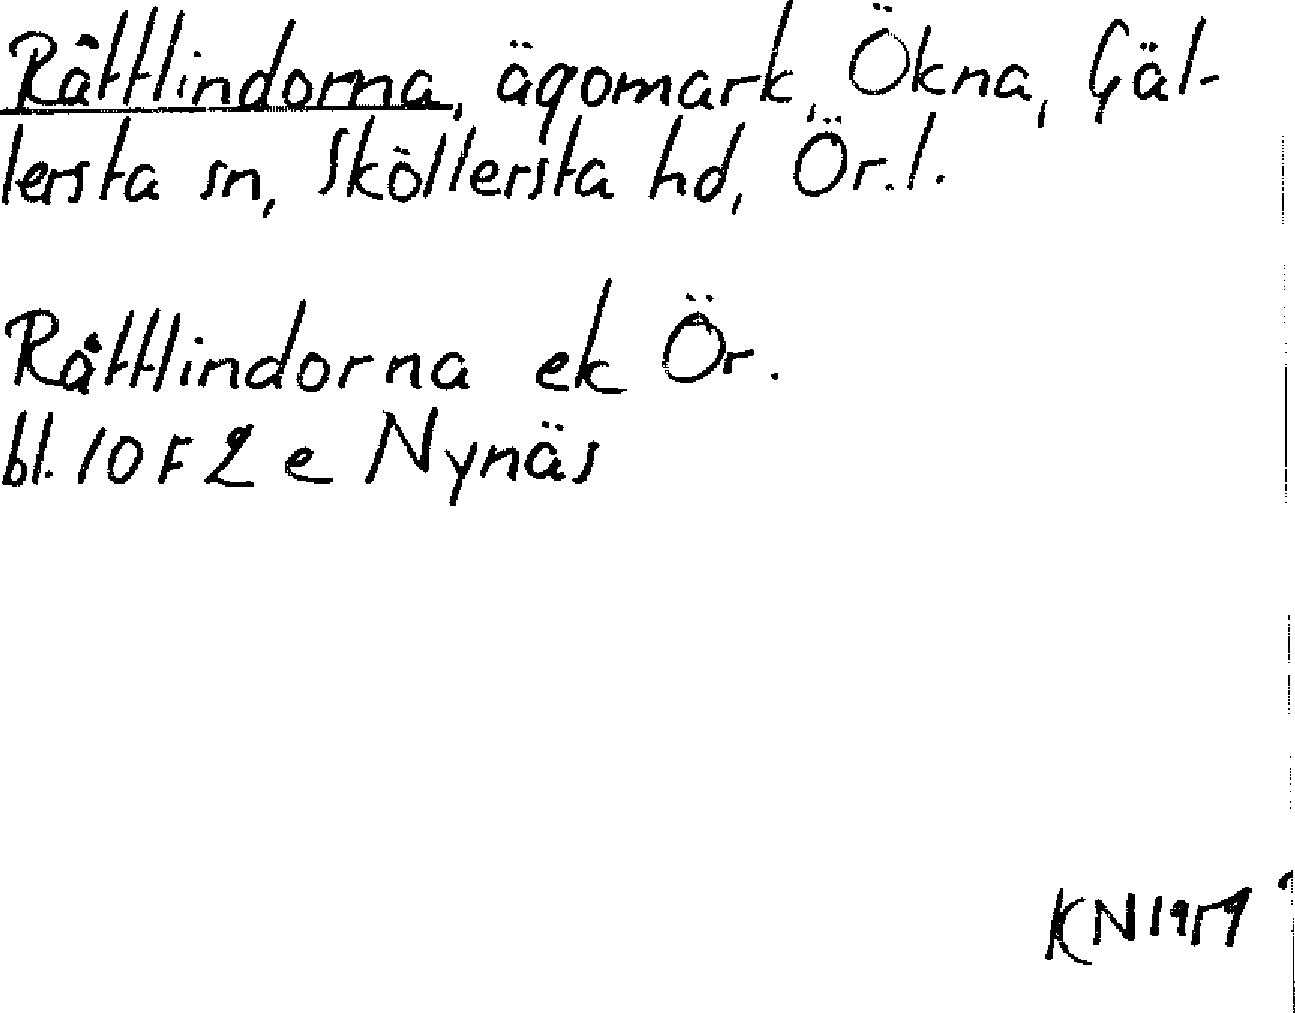 Råttlindorna, ägomark, Ökna, Gäl-
lersta sn, Sköllersta hd, Ör.l.
Råttlindorna ek Ör.
bl. 10F 2 e Nynäs
KN 1959